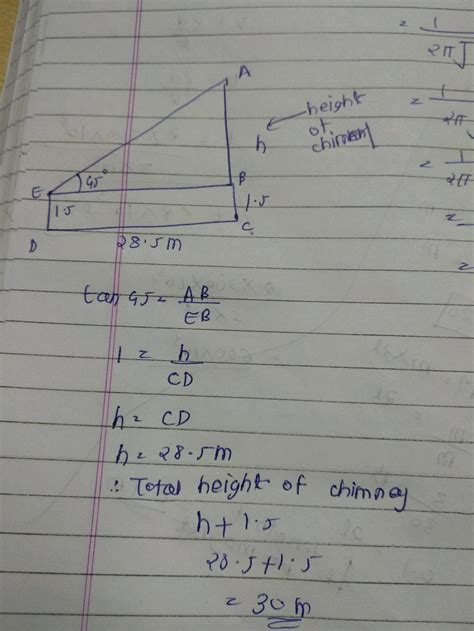 A
h ← height of chimney
E 45° B
1.5 1.5
D 28.5m C
tan 45 = AB/EB
1 = h/CD
h = CD
h = 28.5m
∴ Total height of chimney
h + 1.5
28.5 + 1.5
= 30 m
= 1/2π√
= 1/2π
= 1/2π
=
=